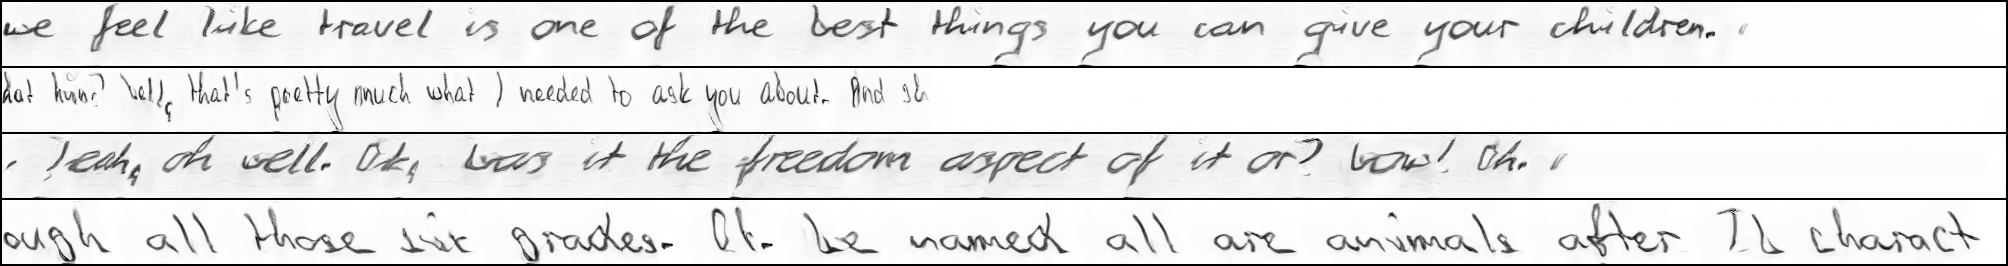 we feel like travel is one of the best things you can give your children.
hat hum? Well, that's pretty much what I needed to ask you about. And sh
. Yeah, oh well. Ok, was it the freedom aspect of it or? Wow! Oh.
ough all those six grades. Ok. We named all are animals after TV charact